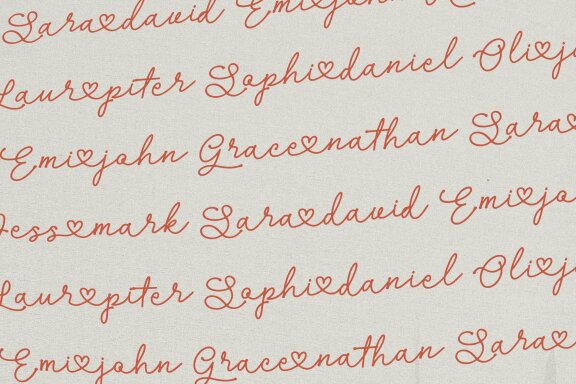 Sara♡david Emi♡john
Laur♡piter Sophi♡daniel Oli♡jo
Emi♡john Grace♡nathan Sara♡
Jess♡mark Sara♡david Emi♡jo
Laur♡piter Sophi♡daniel Oli♡j
Emi♡john Grace♡nathan Sara♡